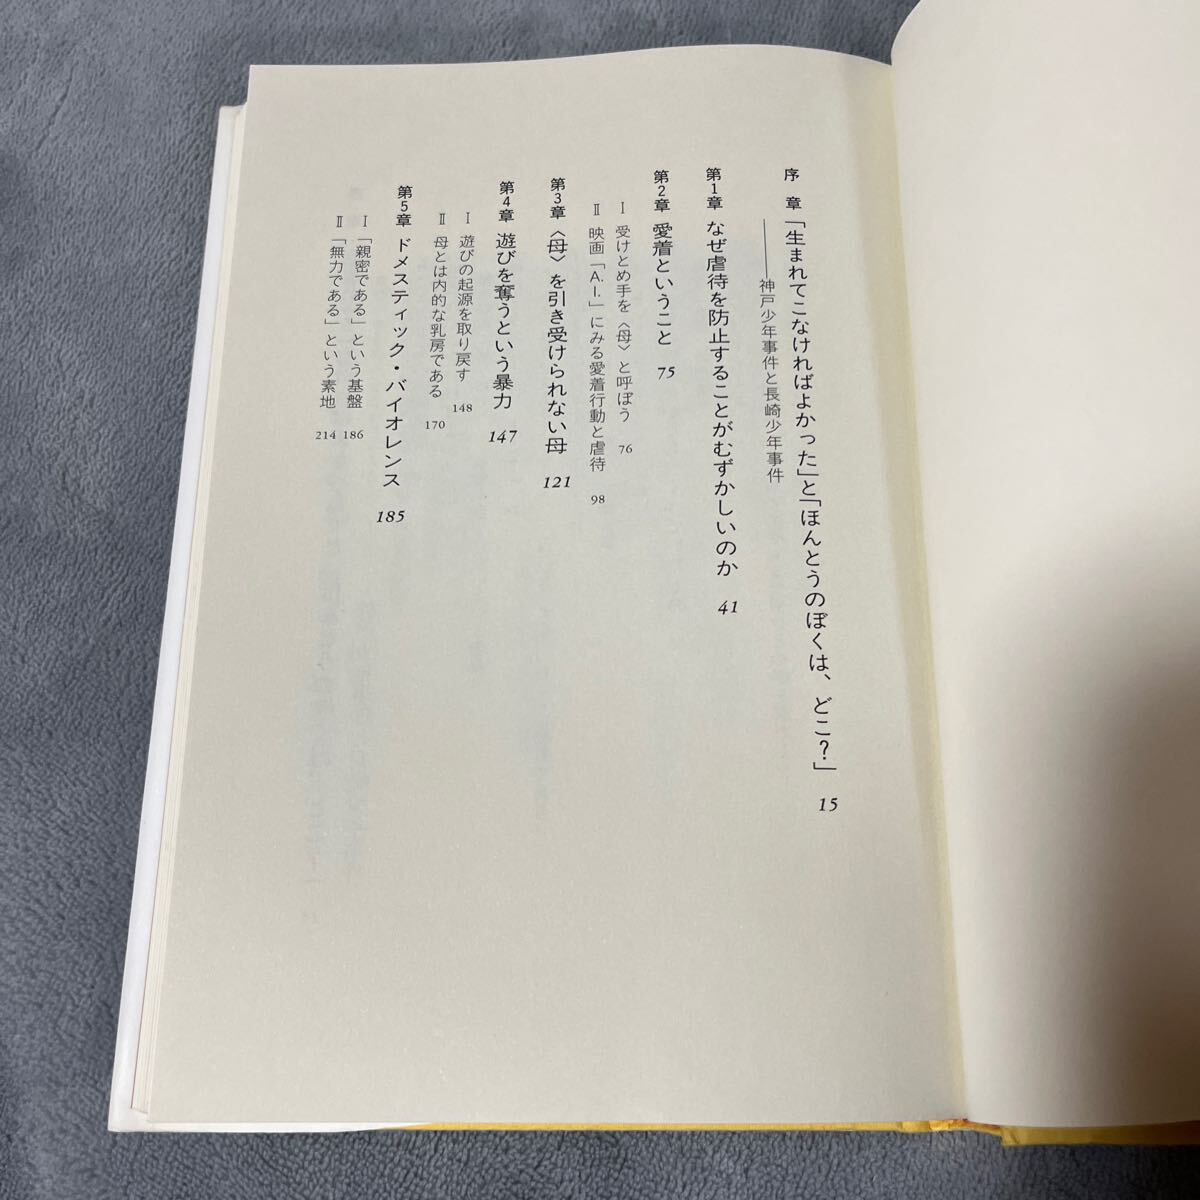 序 章 「生まれてこなければよかった」と「ほんとうのぼくは、どこ？」 15
――神戸少年事件と長崎少年事件
第1章 なぜ虐待を防止することがむずかしいのか 41
第2章 愛着ということ 75
Ⅰ 受けとめ手を〈母〉と呼ぼう 76
Ⅱ 映画「A.I.」にみる愛着行動と虐待 98
第3章 〈母〉を引き受けられない母 121
第4章 遊びを奪うという暴力 147
Ⅰ 遊びの起源を取り戻す 148
Ⅱ 母とは内的な乳房である 170
第5章 ドメスティック・バイオレンス 185
Ⅰ 「親密である」という基盤 186
Ⅱ 「無力である」という素地 214